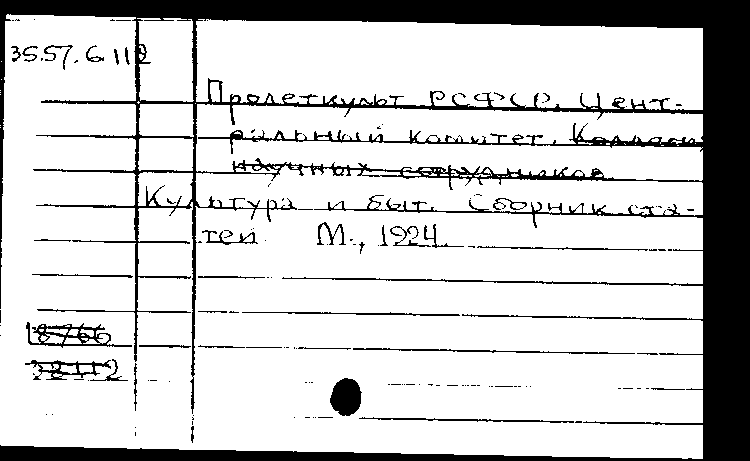 35.57.6.112
Пролеткульт РСФСР. Цент-
ральный комитет. Коллегия
научных сотрудников
Культура и быт. Сборник ста-
тей М., 1924.
18766
32112